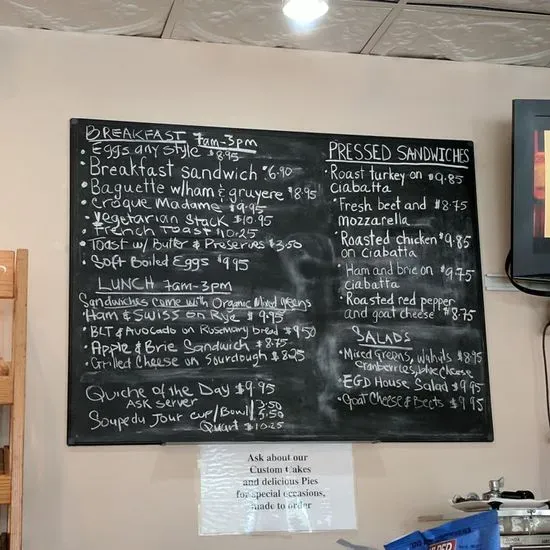 BREAKFAST 7am-3pm
• Eggs any style $8.95
• Breakfast sandwich $6.90
• Baguette w/ham & gruyere $8.95
• Croque Madame $9.95
• Vegetarian Stack $10.95
• French Toast $10.25
• Toast w/ Butter & Preserves $3.50
• Soft Boiled Eggs $9.95
LUNCH 7am-3pm
Sandwiches come with Organic Mixed greens
Ham & Swiss on Rye $9.95
• BLT & Avocado on Rosemary bread $9.50
• Apple & Brie Sandwich $8.75
• Grilled Cheese on Sourdough $8.25
Quiche of the Day $9.95
ASK SERVER
Soupedu Jour cup/Bowl 3.50
5.50
Quart $10.25
PRESSED SANDWICHES
• Roast turkey on $9.85
ciabatta
• Fresh beet and $8.75
mozzarella
• Roasted chicken $9.85
on Ciabatta
• Ham and brie on $9.75
ciabatta
• Roasted red pepper
and goat cheese $8.75
SALADS
• Mixed Greens, Walnuts $8.95
cranberries, blue cheese
• EGD House Salad $9.95
• Goat Cheese & Beets $9.95
Ask about our
Custom Cakes
and delicious Pies
for special occasions,
made to order